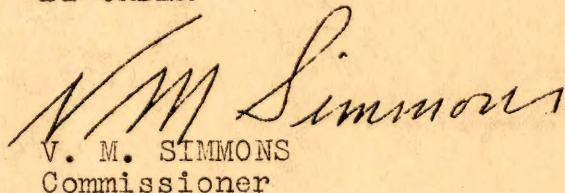 V M Simmons
V. M. SIMMONS
Commissioner